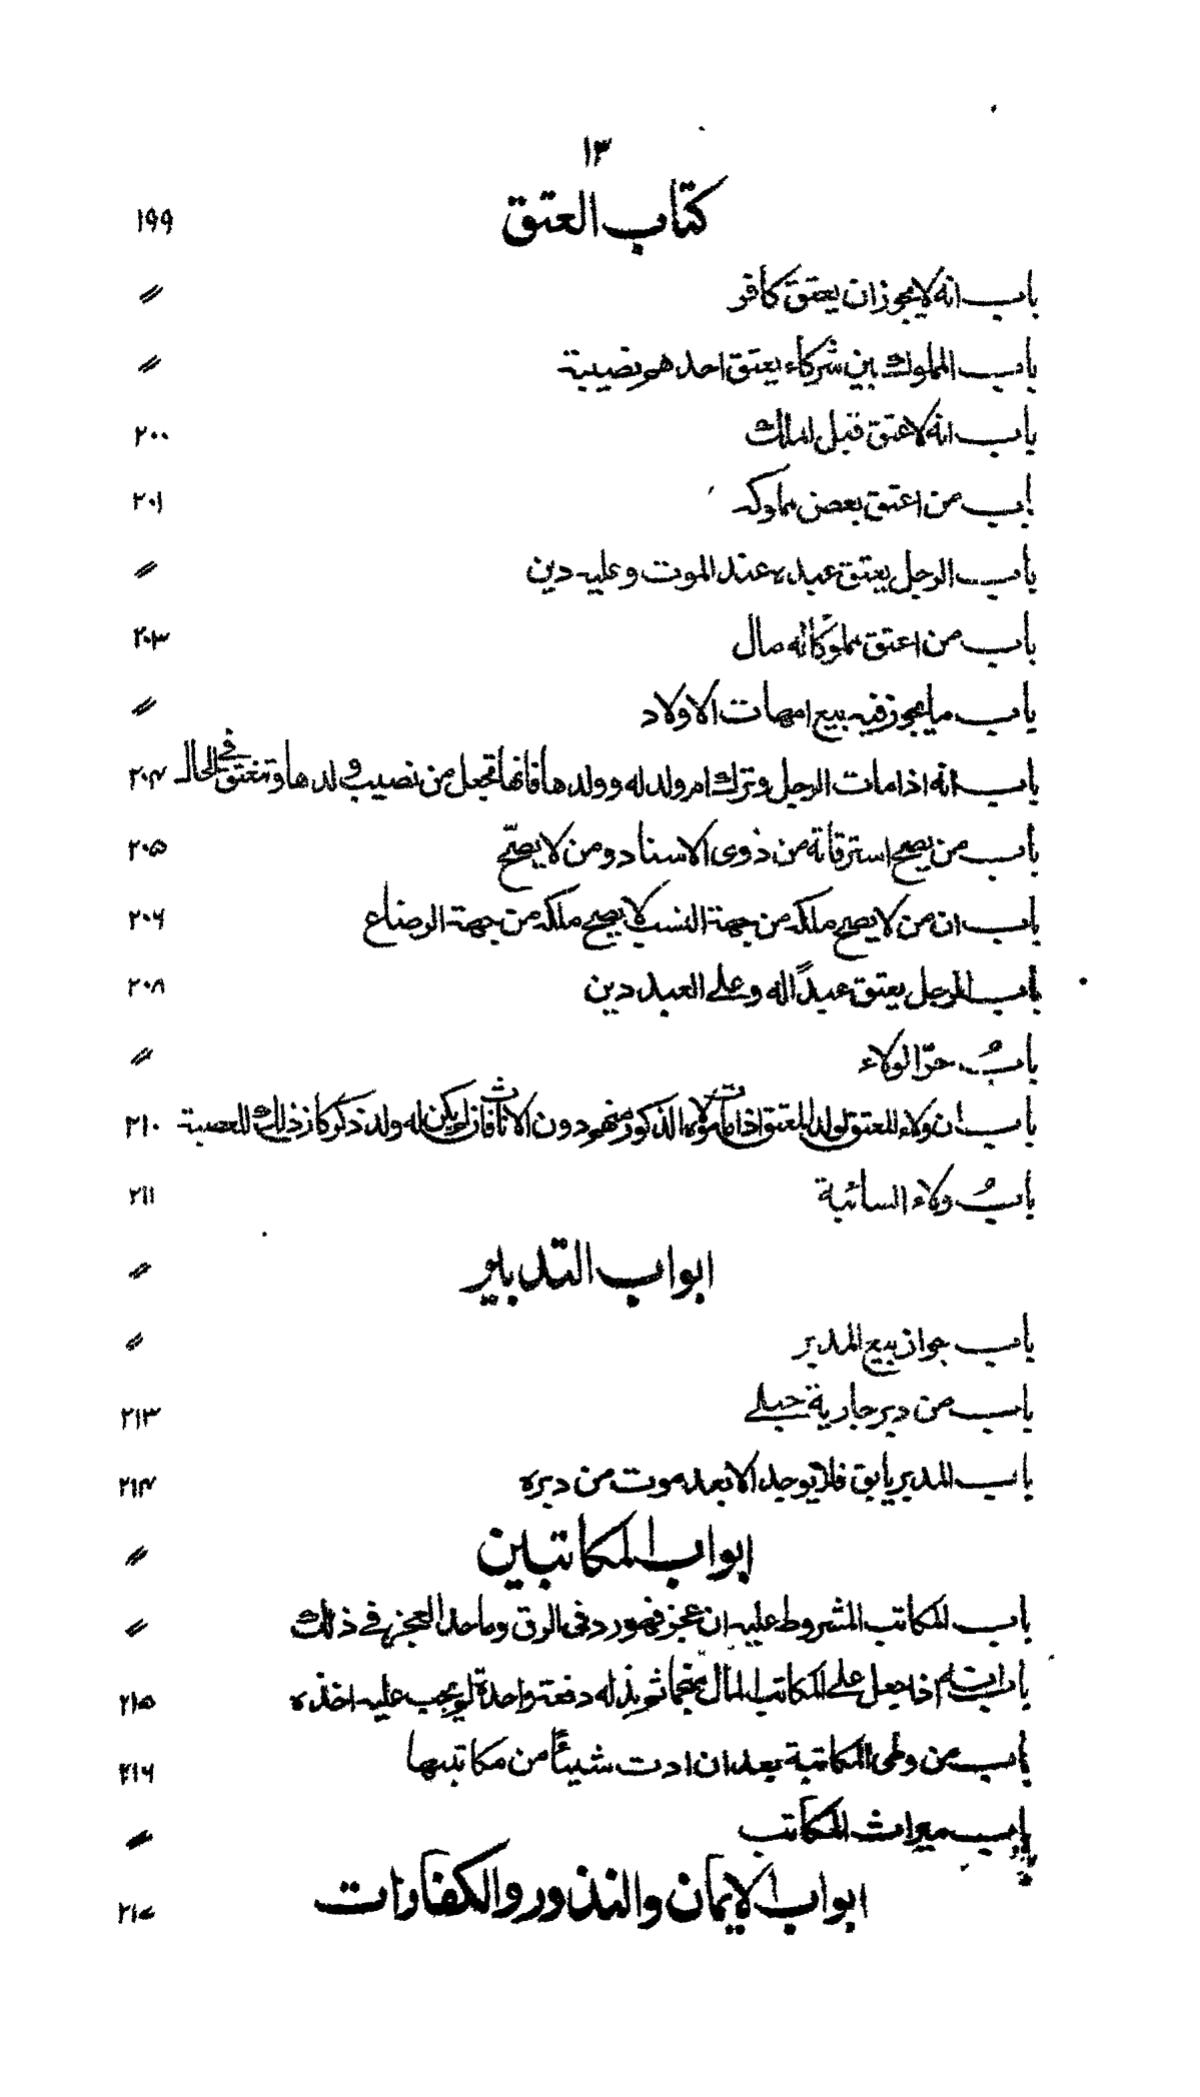 ١٣
كتاب العتق ١٩٩
باب انه لا يجوز ان يعتق كافر ״
باب المملوك بين شركاء يعتق احدهم نصيبة ״
باب انه لا عتق قبل الملك ٢٠٠
باب من اعتق بعض مملوكه ٢٠١
باب الرجل يعتق عبده عند الموت وعليه دين ״
باب من اعتق مملوكا له مال ٢٠٣
باب ما يجوز فيه بيع امهات الاولاد ״
باب انه اذا مات الرجل وترك ام ولد له وولدها فانها تجعل من نصيب ولدها وتنعتق في الحال ٢٠٤
باب من يصح استرقاقه من ذوى الانساب ومن لا يصحّ ٢٠٥
باب ان من لا يصح ملكه من جهة النسب لا يصح ملكه من جهة الرضاع ٢٠٦
باب الرجل يعتق عبداً له وعلى العبد دين ٢٠٨
بابُ جرّ الولاء ״
باب ان ولاء المعتق لولد المعتق اذا مات مولاه الذكور منهم دون الاناث فان لم يكن له ولد ذكر كان ذلك للعصبة ٢١٠
بابُ ولاء السائبة ٢١١
ابواب التدبير ״
باب جواز بيع المدبر ״
باب من دبر جارية حبلى ٢١٣
باب المدبر يابق فلا يوجد الا بعد موت من دبره ٢١٤
ابواب المكاتبين ״
باب المكاتب المشروط عليه ان عجز فهو رد فى الرق وما حد العجز فى ذلك ״
باب اذا جعل على المكاتب المال نجما ثم بذله دفعة واحدة لم يجب عليه اخذه ٢١٥
باب من وطى المكاتبة بعد ان ادت شيئاً من مكاتبها ٢١٦
باب ميراث المكاتب ״
ابواب الايمان والنذور والكفارات ٢١٧